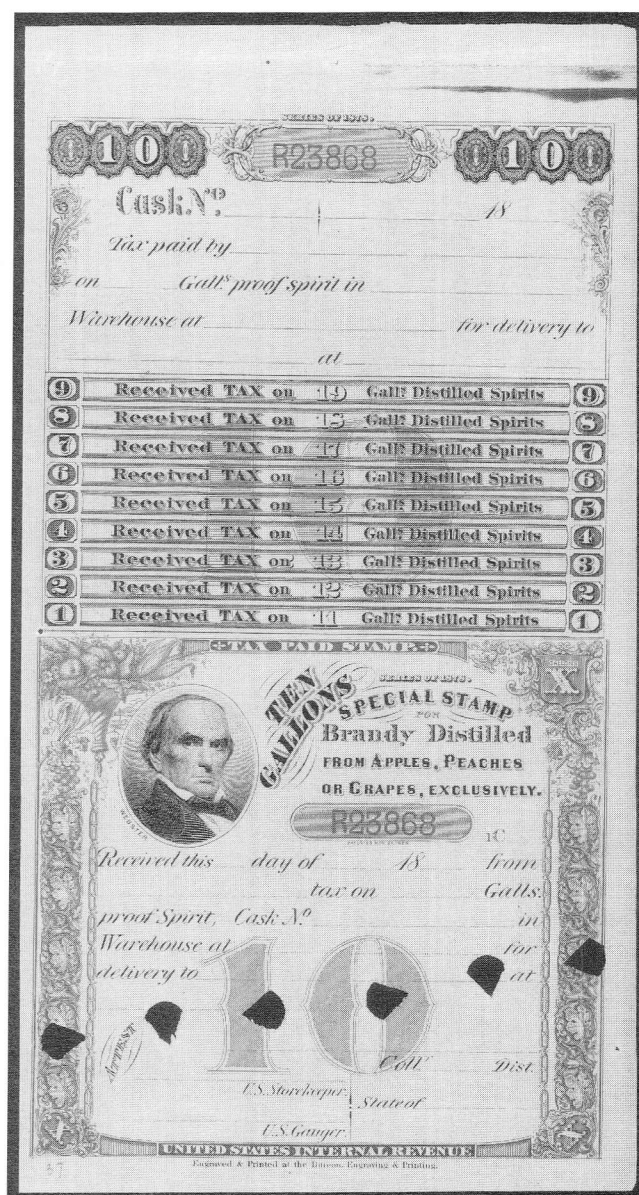 SERIES OF 1878.
10 R23868 10
Cask Nº 18
Tax paid by
on Galls. proof spirit in
Warehouse at for delivery to
at
9 Received TAX on 19 Galls. Distilled Spirits 9
8 Received TAX on 18 Galls. Distilled Spirits 8
7 Received TAX on 17 Galls. Distilled Spirits 7
6 Received TAX on 16 Galls. Distilled Spirits 6
5 Received TAX on 15 Galls. Distilled Spirits 5
4 Received TAX on 14 Galls. Distilled Spirits 4
3 Received TAX on 13 Galls. Distilled Spirits 3
2 Received TAX on 12 Galls. Distilled Spirits 2
1 Received TAX on 11 Galls. Distilled Spirits 1
TAX PAID STAMP.
SERIES OF 1878.
X
TEN GALLONS
SPECIAL STAMP
FOR
Brandy Distilled
FROM APPLES, PEACHES
OR GRAPES, EXCLUSIVELY.
WEBSTER
R23868
1C
Received this day of 18 from
tax on Galls.
proof Spirit, Cask Nº in
Warehouse at for
delivery to at
10
ATTEST
Coll. Dist.
U.S. Storekeeper.
State of
U.S. Gauger.
X X
UNITED STATES INTERNAL REVENUE
Engraved & Printed at the Bureau, Engraving & Printing.
37